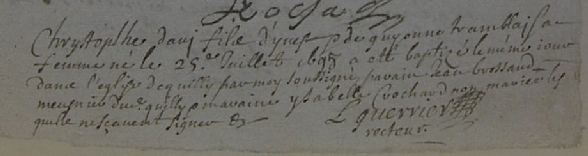 Chrystophe davj fils d'yves p de guyonne tramblais sa
femme né le 25e Juillet 1693 a été baptisé le même jour
dans l'église de quilly par moy soussigné parain Jean brossaud
meusnier du quilly marainne ysabelle Crochard non mariée lesquels
ne scavent signer &
L guerrier
recteur.